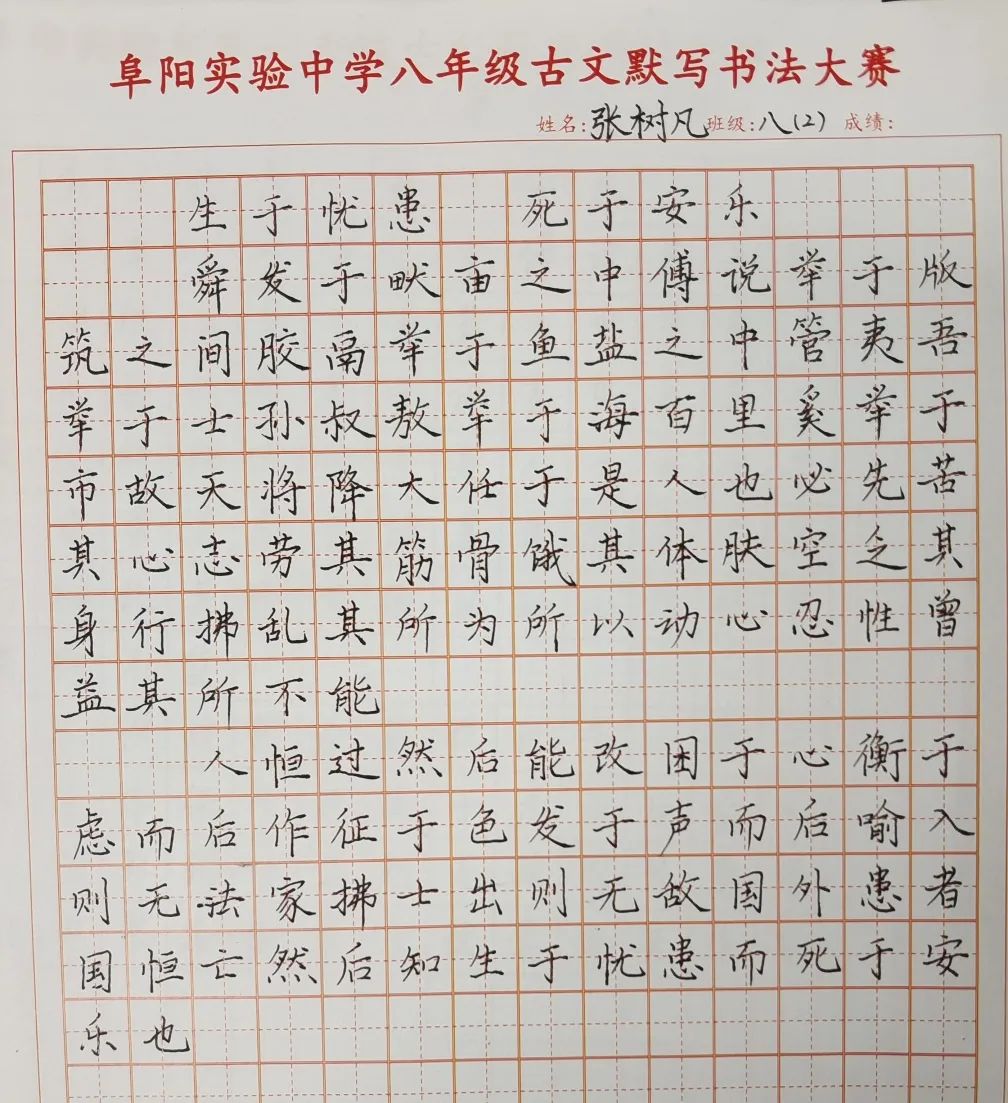 阜阳实验中学八年级古文默写书法大赛
姓名:张树凡班级:八(2) 成绩:
生于忧患 死于安乐
舜发于畎亩之中傅说举于版
筑之间胶鬲举于鱼盐之中管夷吾
举于士孙叔敖举于海百里奚举于
市故天将降大任于是人也必先苦
其心志劳其筋骨饿其体肤空乏其
身行拂乱其所为所以动心忍性曾
益其所不能
人恒过然后能改困于心衡于
虑而后作征于色发于声而后喻入
则无法家拂士出则无敌国外患者
国恒亡然后知生于忧患而死于安
乐也